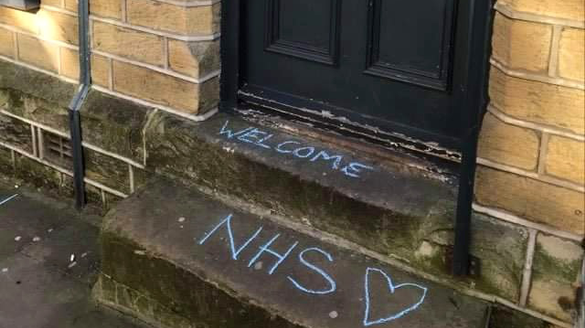 WELCOME
NHS